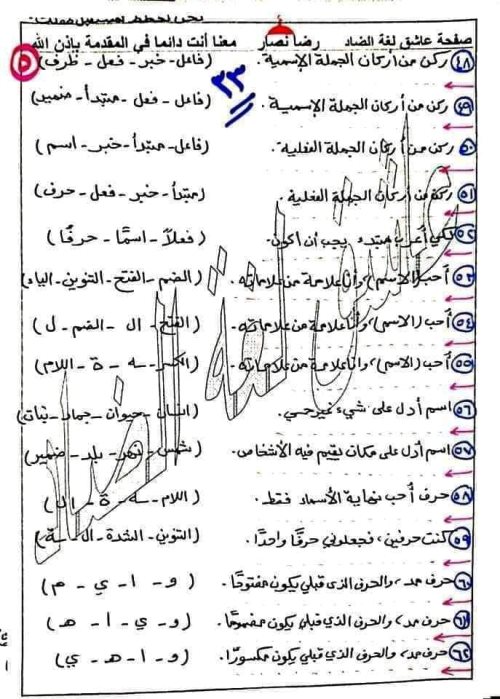 صفحة عاشق لغة الضاد رضا نصار معنا أنت دائما في المقدمة بإذن الله
٥
٣٣
٤٨ ركن من أركان الجملة الإسمية. (فاعل - خبر - فعل - ظرف)
٤٩ ركن من أركان الجملة الإسمية. (فاعل - فعل - مبتدأ - ضمير)
٥٠ ركن من أركان الجملة الفعلية. (فاعل - مبتدأ - خبر - اسم)
٥١ ركن من أركان الجملة الفعلية. (مبتدأ - خبر - فعل - حرف)
٥٢ لكي أعرب مبتدء يجب أن أكون. (فعلاً - اسمًا - حرفًا)
٥٣ أحب (الاسم) وأنا علامة من علاماته. (الضم - الفتح - التنوين - الياء)
٥٤ أحب (الاسم)، وأنا علامة من علاماته. (الفتح - ال - الضم - ل)
٥٥ أحب (الاسم)، وأنا علامة من علاماته. (الكسر - ـه - ة - اللام)
٥٦ اسم أدل على شيء غير حي. (انسان - حيوان - جماد - نبات)
٥٧ اسم أدل على مكان يقيم فيه الأشخاص. (شمس - نهر - بلد - ضمير)
٥٨ حرف أحب نهاية الأسماء فقط. (اللام - ـه - ة - ال)
٥٩ كنت حرفين، فجعلوني حرفًا واحدًا. (التنوين - الشدة - ال - ـة)
٦٠ حرف مد، والحرف الذي قبلي يكون مفتوحًا. (و - ا - ي - م)
٦١ حرف مد، والحرف الذي قبلي يكون مضمومًا. (و - ي - ا - هـ)
٦٢ حرف مد، والحرف الذي قبلي يكون مكسورًا. (و - ا - هـ - ي)
عاشق لغة الضاد